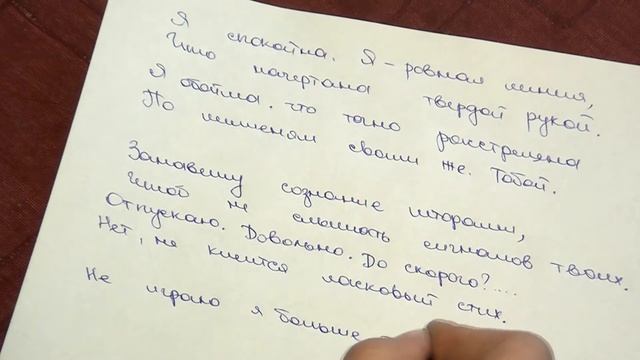 Я спокойна. Я - ровная линия,
Что начертана твердой рукой.
Я обойма. что точно расстреляна
По мишеням своим же. Тобой.
Занавешу сознание шторами,
Чтоб не слышать сигналов твоих.
Отпускаю. Довольно. До скорого?....
Нет, не клеится ласковый стих.
Не играю я больше